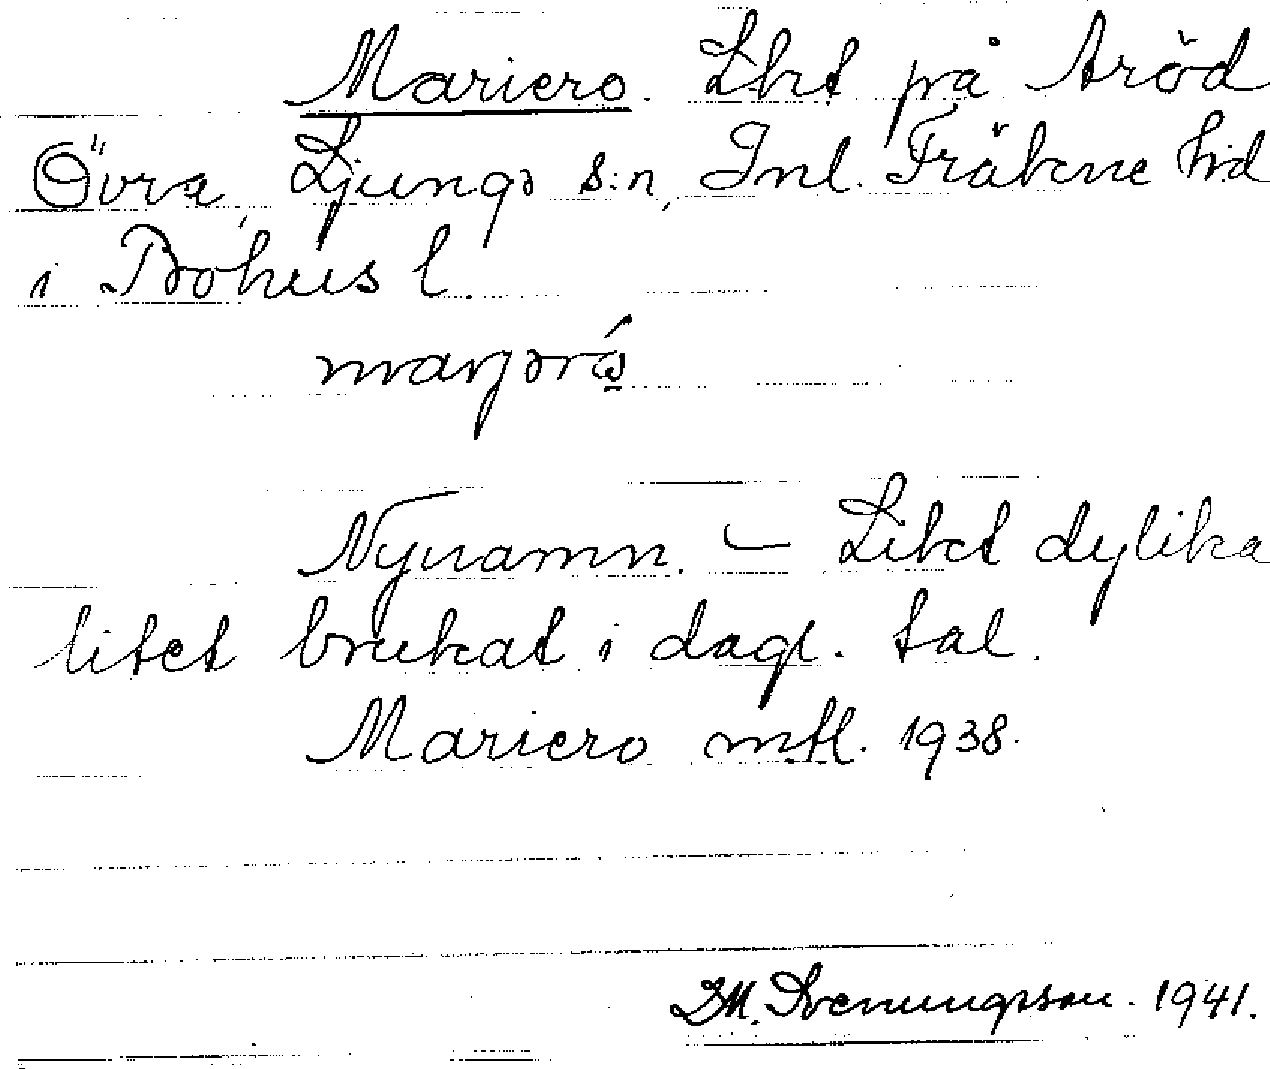 Mariero. Lht på Aröd
Övra, Ljungs s:n, Inl. Fräkne hd
i Bohus l.
Nynamn. – Litet dylika
litet brukat i dagl. tal.
Mariero mtl. 1938.
D.M. Svenungsson. 1941.